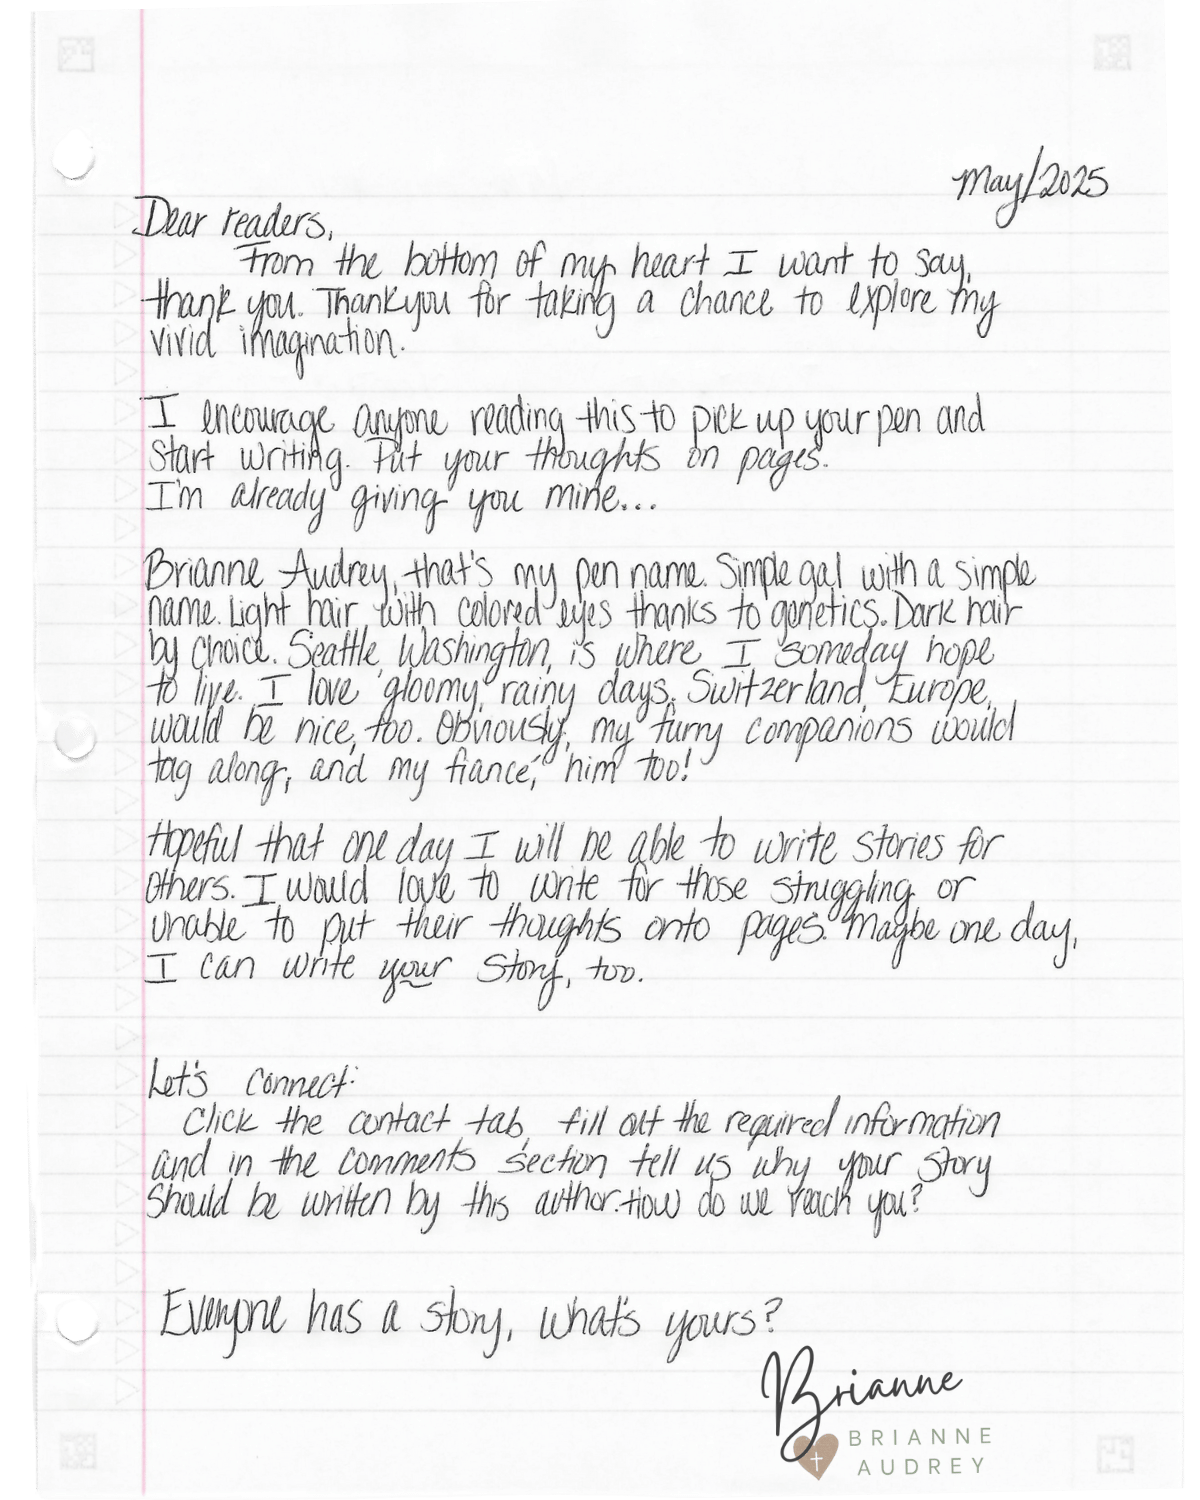 May/2025
Dear readers,
From the bottom of my heart I want to say,
thank you. Thankyou for taking a chance to explore my
vivid imagination.
I encourage anyone reading this to pick up your pen and
start writing. Put your thoughts on pages.
I'm already giving you mine...
Brianne Audrey, that's my pen name. Simple gal with a simple
name. Light hair, with colored eyes thanks to genetics. Dark hair
by choice. Seattle, Washington, is where I someday hope
to live. I love gloomy, rainy days. Switzerland, Europe,
would be nice, too. Obviously, my furry companions would
tag along, and my fiancé, him too!
Hopeful that one day I will be able to write stories for
others. I would love to write for those struggling or
unable to put their thoughts onto pages. Maybe one day,
I can write your story, too.
Let's connect:
Click the contact tab, fill out the required information
and in the comments section tell us why your story
should be written by this author. How do we reach you?
Everyone has a story, what's yours?
Brianne
BRIANNE
AUDREY